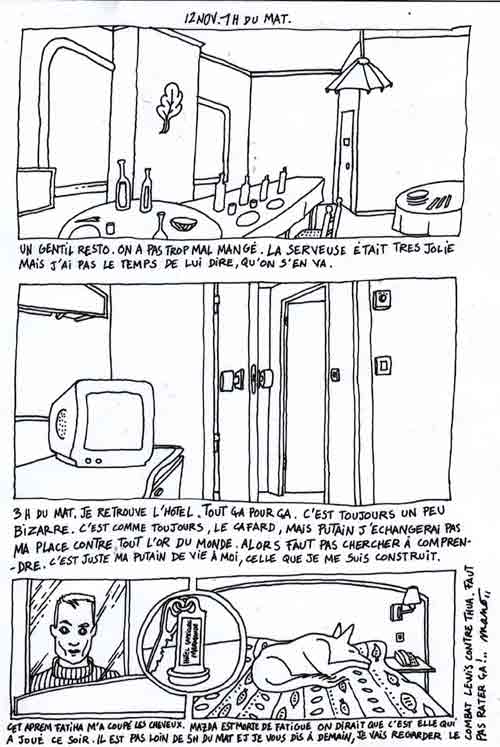 12 NOV. 1H DU MAT.
UN GENTIL RESTO. ON A PAS TROP MAL MANGÉ. LA SERVEUSE ÉTAIT TRES JOLIE
MAIS J'AI PAS LE TEMPS DE LUI DIRE, QU'ON S'EN VA.
3H DU MAT. JE RETROUVE L'HOTEL. TOUT ÇA POUR ÇA. C'EST TOUJOURS UN PEU
BIZARRE. C'EST COMME TOUJOURS, LE CAFARD, MAIS PUTAIN J'ECHANGERAI PAS
MA PLACE CONTRE TOUT L'OR DU MONDE. ALORS FAUT PAS CHERCHER À COMPREN-
-DRE. C'EST JUSTE MA PUTAIN DE VIE À MOI, CELLE QUE JE ME SUIS CONSTRUIT.
CET APREM FATIHA M'A COUPÉ LES CHEVEUX. MAZDA EST MORTE DE FATIGUE ON DIRAIT QUE C'EST ELLE QUI
A JOUÉ CE SOIR. IL EST PAS LOIN DE 5H DU MAT ET JE VOUS DIS À DEMAIN, JE VAIS REGARDER LE
COMBAT LEWIS CONTRE THUA. FAUT
PAS RATER ÇA!..